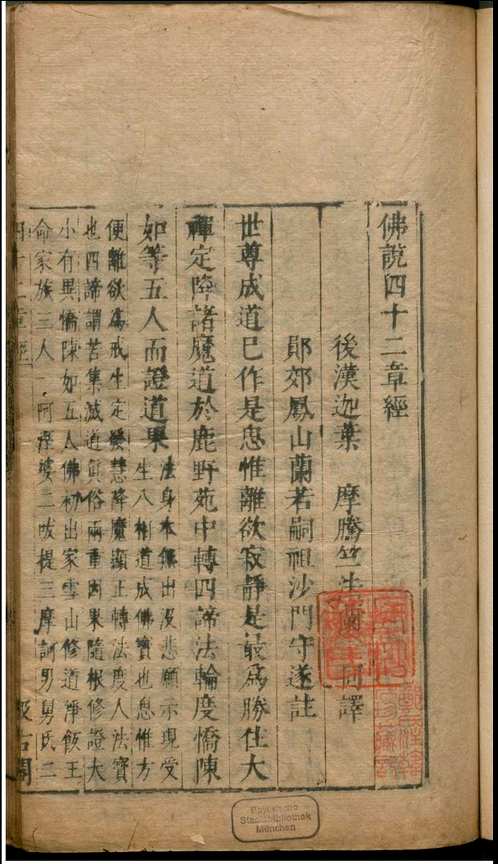 佛說四十二章經
後漢迦葉 摩騰竺法蘭 同譯
郧郊鳳山蘭若嗣祖沙門守遂註
世尊成道已作是思惟離欲寂靜是最為勝住大
禪定降諸魔道於鹿野苑中轉四諦法輪度憍陳
如等五人而證道果
法身本無出沒悲願示現受
生八相道成佛寶也思惟方
便離欲為戒生定發慧降魔顯正轉法度人法寶
也四諦謂苦集滅道真俗兩重因果隨根修證大
小有異憍陳如五人佛初出家雪山修道淨飯王
命家族三人 阿溼婆二跋提三摩訶男舅氏二
四十二章經
汲古閣
Bayerische
Staatsbibliothek
München